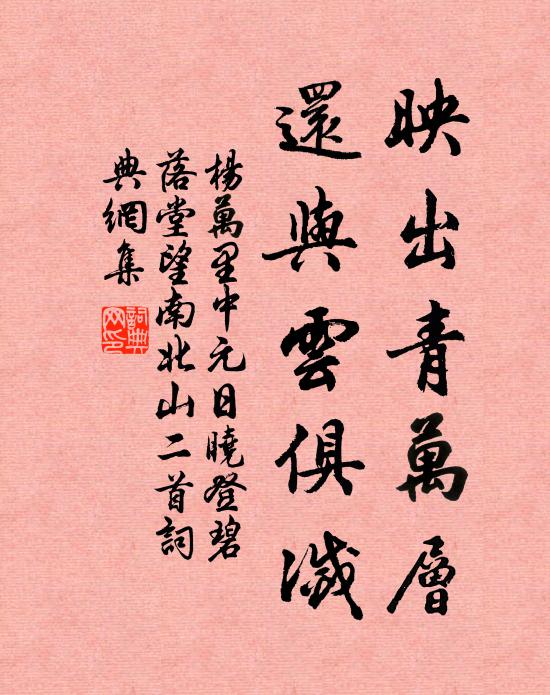 映出青萬層
還與雲俱滅
楊萬里中元日曉登碧
落堂望南北山二首詞
典網集
詞典
网印